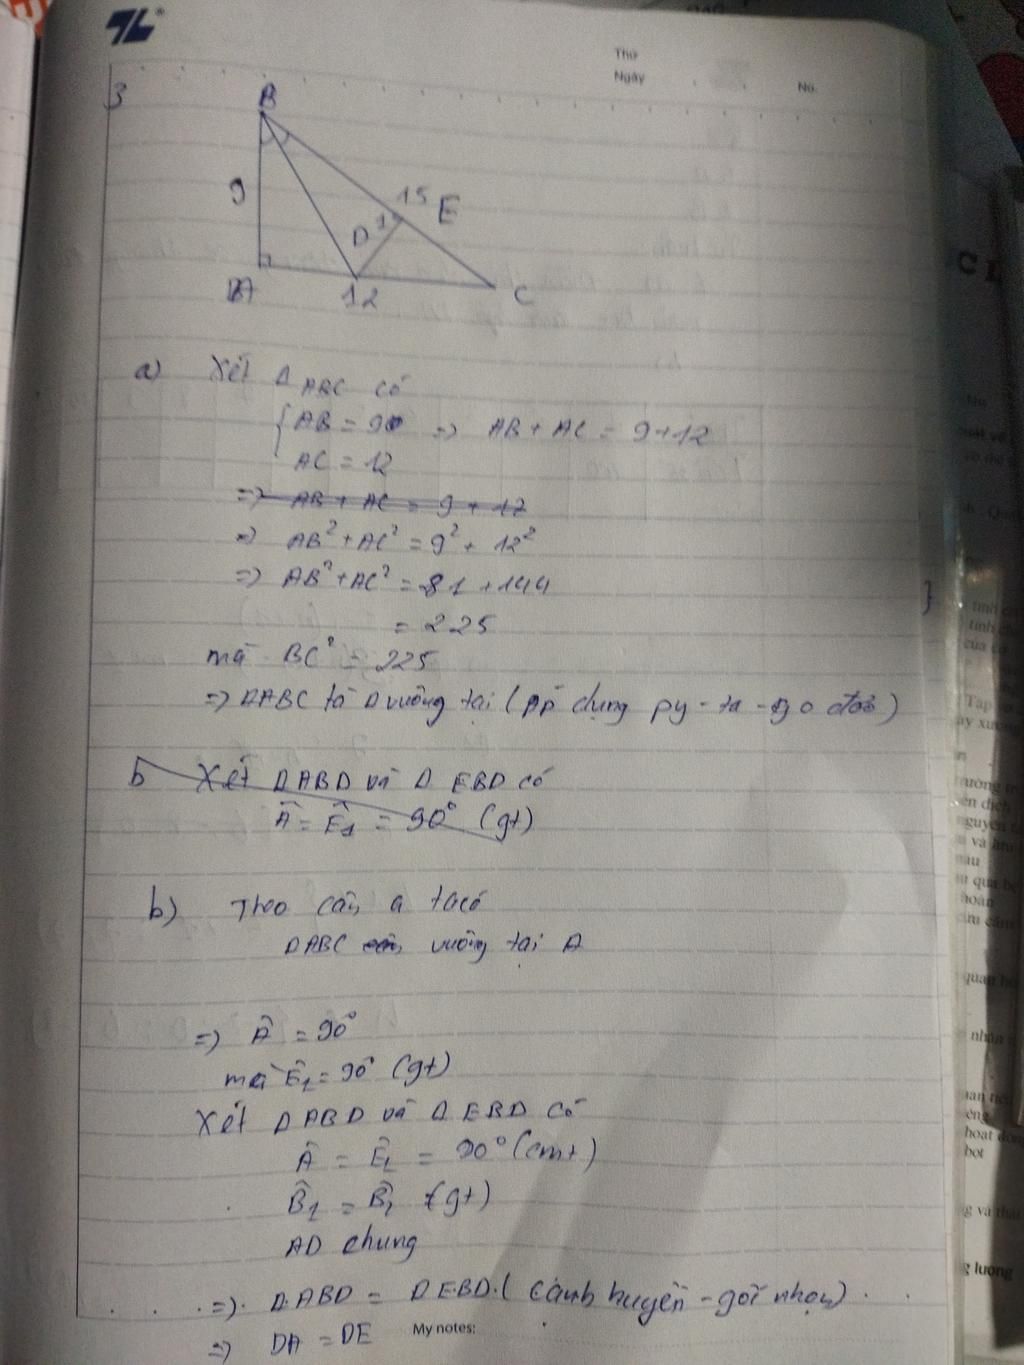 Thứ
Ngày
No.
3
B
9
15 E
D 1
A
12
C
a) Xét Δ ABC có
AB = 9 => AB + AC = 9 + 12
AC = 12
=> AB + AC = 9 + 12
=> AB² + AC² = 9² + 12²
=> AB² + AC² = 81 + 144
= 225
mà BC² = 225
=> ΔABC là Δ vuông tại (Áp dụng py - ta - go đảo)
b Xét ΔABD và Δ EBD có
Â = Ê1 = 90° (gt)
b) Theo câu a ta có
ΔABC vuông tại A
=> Â = 90°
mà Ê1 = 90° (gt)
Xét ΔABD và Δ EBD có
Â = Ê1 = 90° (cmt)
B̂1 = B̂2 (gt)
AD chung
=> ΔABD = ΔEBD (cạnh huyền - gói nhọn)
=> DA = DE
My notes: